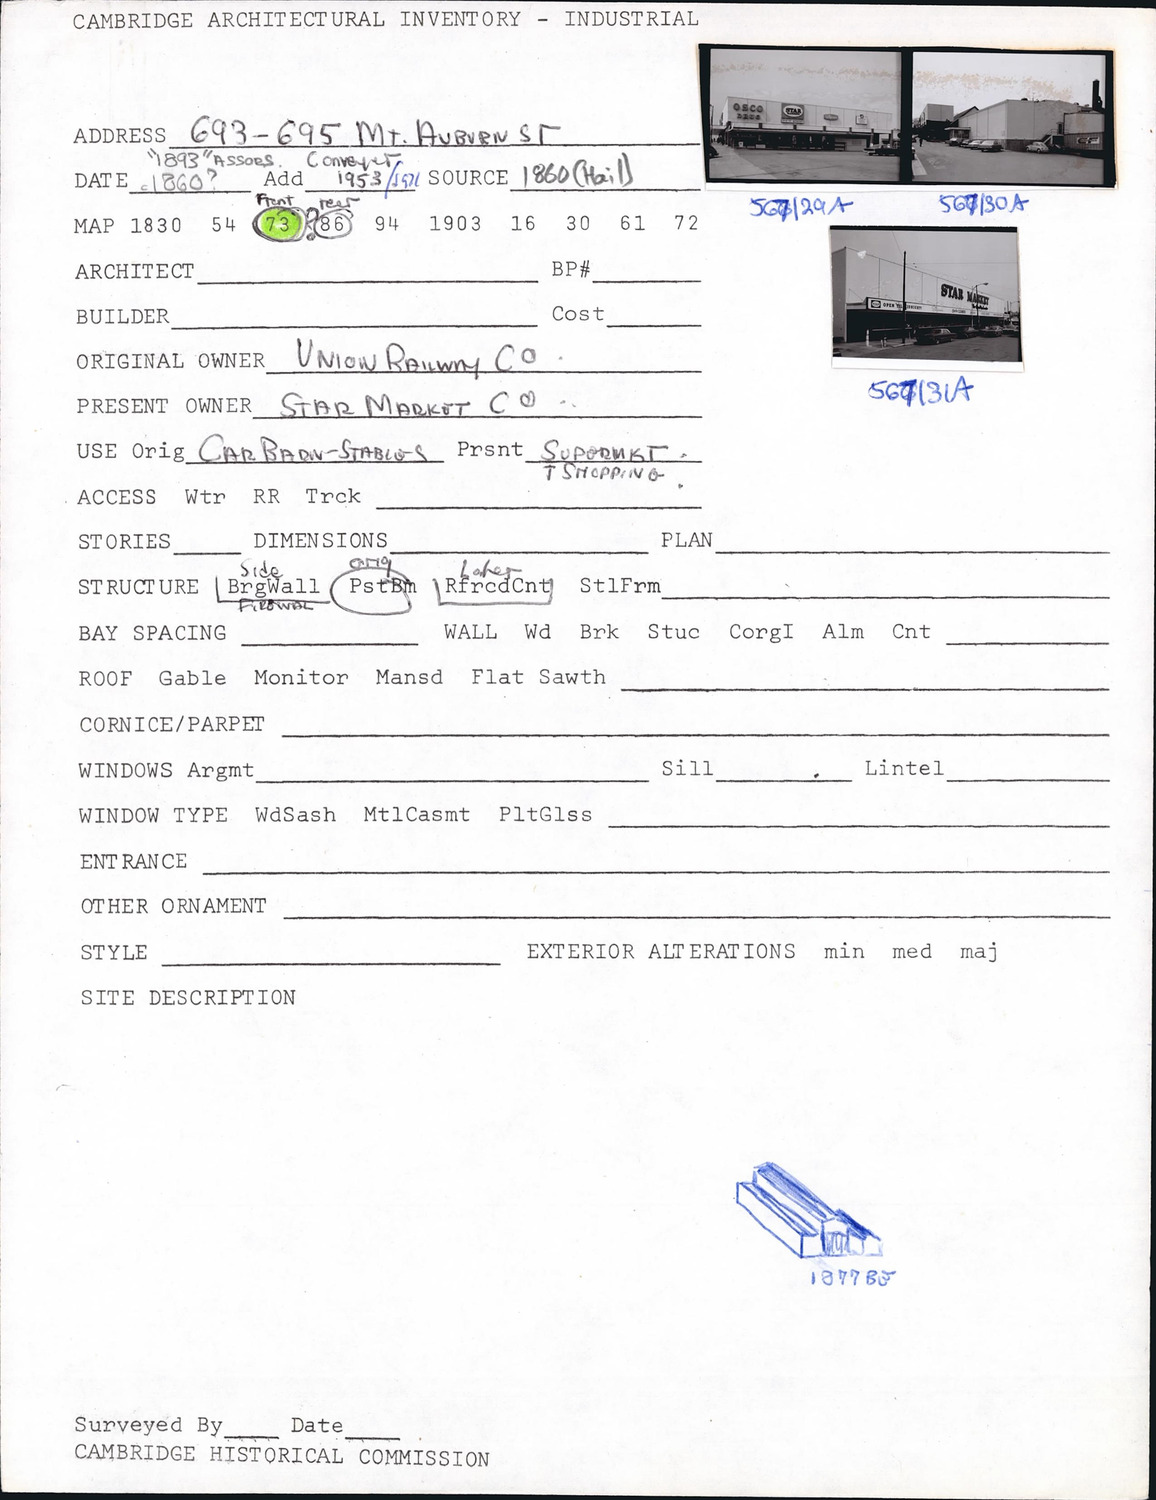 CAMBRIDGE ARCHITECTURAL INVENTORY - INDUSTRIAL
OSCO
DRUG
STAR
567/29A
567/30A
STAR MARKET
567/31A
ADDRESS 693-695 MT. AUBURN ST
"1893" ASSORS. Conveyer
DATE c1860? Add 1953/1971 SOURCE 1860 (Hail)
Front rear
MAP 1830 54 73 ? 86 94 1903 16 30 61 72
ARCHITECT BP#
BUILDER Cost
ORIGINAL OWNER UNION RAILWAY CO.
PRESENT OWNER STAR MARKET CO
USE Orig CAR BARN-STABLES Prsnt SUPERMKT
+ SHOPPING
ACCESS Wtr RR Trck
STORIES DIMENSIONS PLAN
Side orig Later
STRUCTURE BrgWall PstBm RfrcdCnt StlFrm
FIREWAL
BAY SPACING WALL Wd Brk Stuc CorgI Alm Cnt
ROOF Gable Monitor Mansd Flat Sawth
CORNICE/PARPET
WINDOWS Argmt Sill Lintel
WINDOW TYPE WdSash MtlCasmt PltGlss
ENTRANCE
OTHER ORNAMENT
STYLE EXTERIOR ALTERATIONS min med maj
SITE DESCRIPTION
1877 BE
Surveyed By Date
CAMBRIDGE HISTORICAL COMMISSION